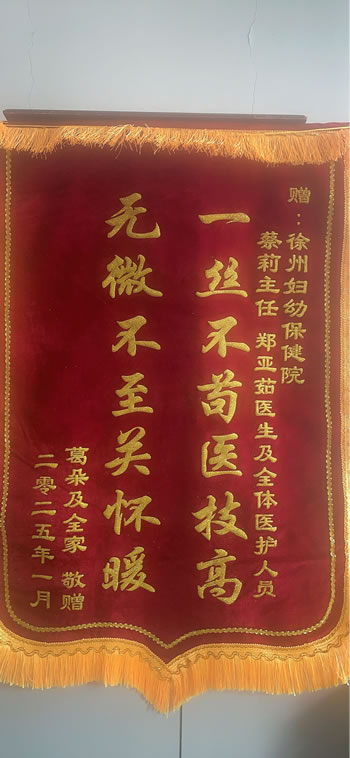 赠：徐州妇幼保健院
蔡莉主任 郑亚茹医生及全体医护人员
一丝不苟医技高
无微不至关怀暖
葛朵及全家 敬赠
二零二五年一月